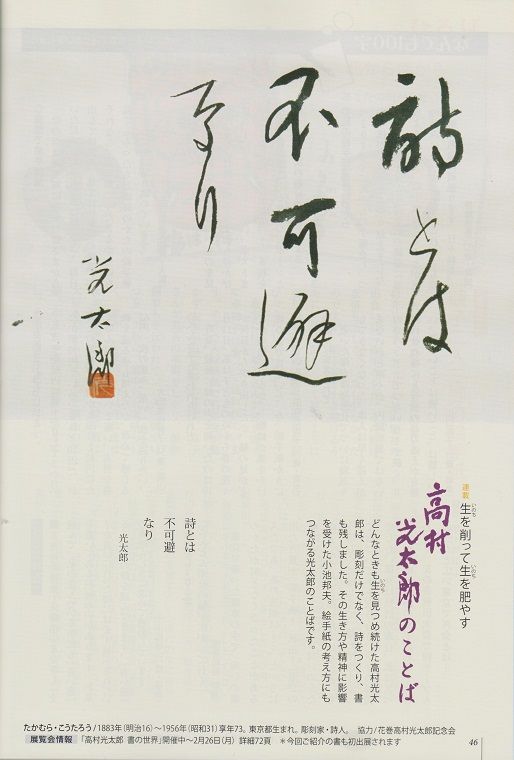 詩とは
不可避
なり
光太郎
連載 生を削って生を肥やす
高村
光太郎のことば
どんなときも生を見つめ続けた高村光太
郎は、彫刻だけでなく、詩をつくり、書
も残しました。その生き方や精神に影響
を受けた小池邦夫。絵手紙の考え方にも
つながる光太郎のことばです。
詩とは
不可避
なり
光太郎
たかむら・こうたろう/1883年(明治16)〜1956年(昭和31)享年73。東京都生まれ。彫刻家・詩人。 協力/花巻高村光太郎記念会
展覧会情報 「高村光太郎 書の世界」開催中〜2月26日(月)詳細72頁 *今回ご紹介の書も初出展されます
46